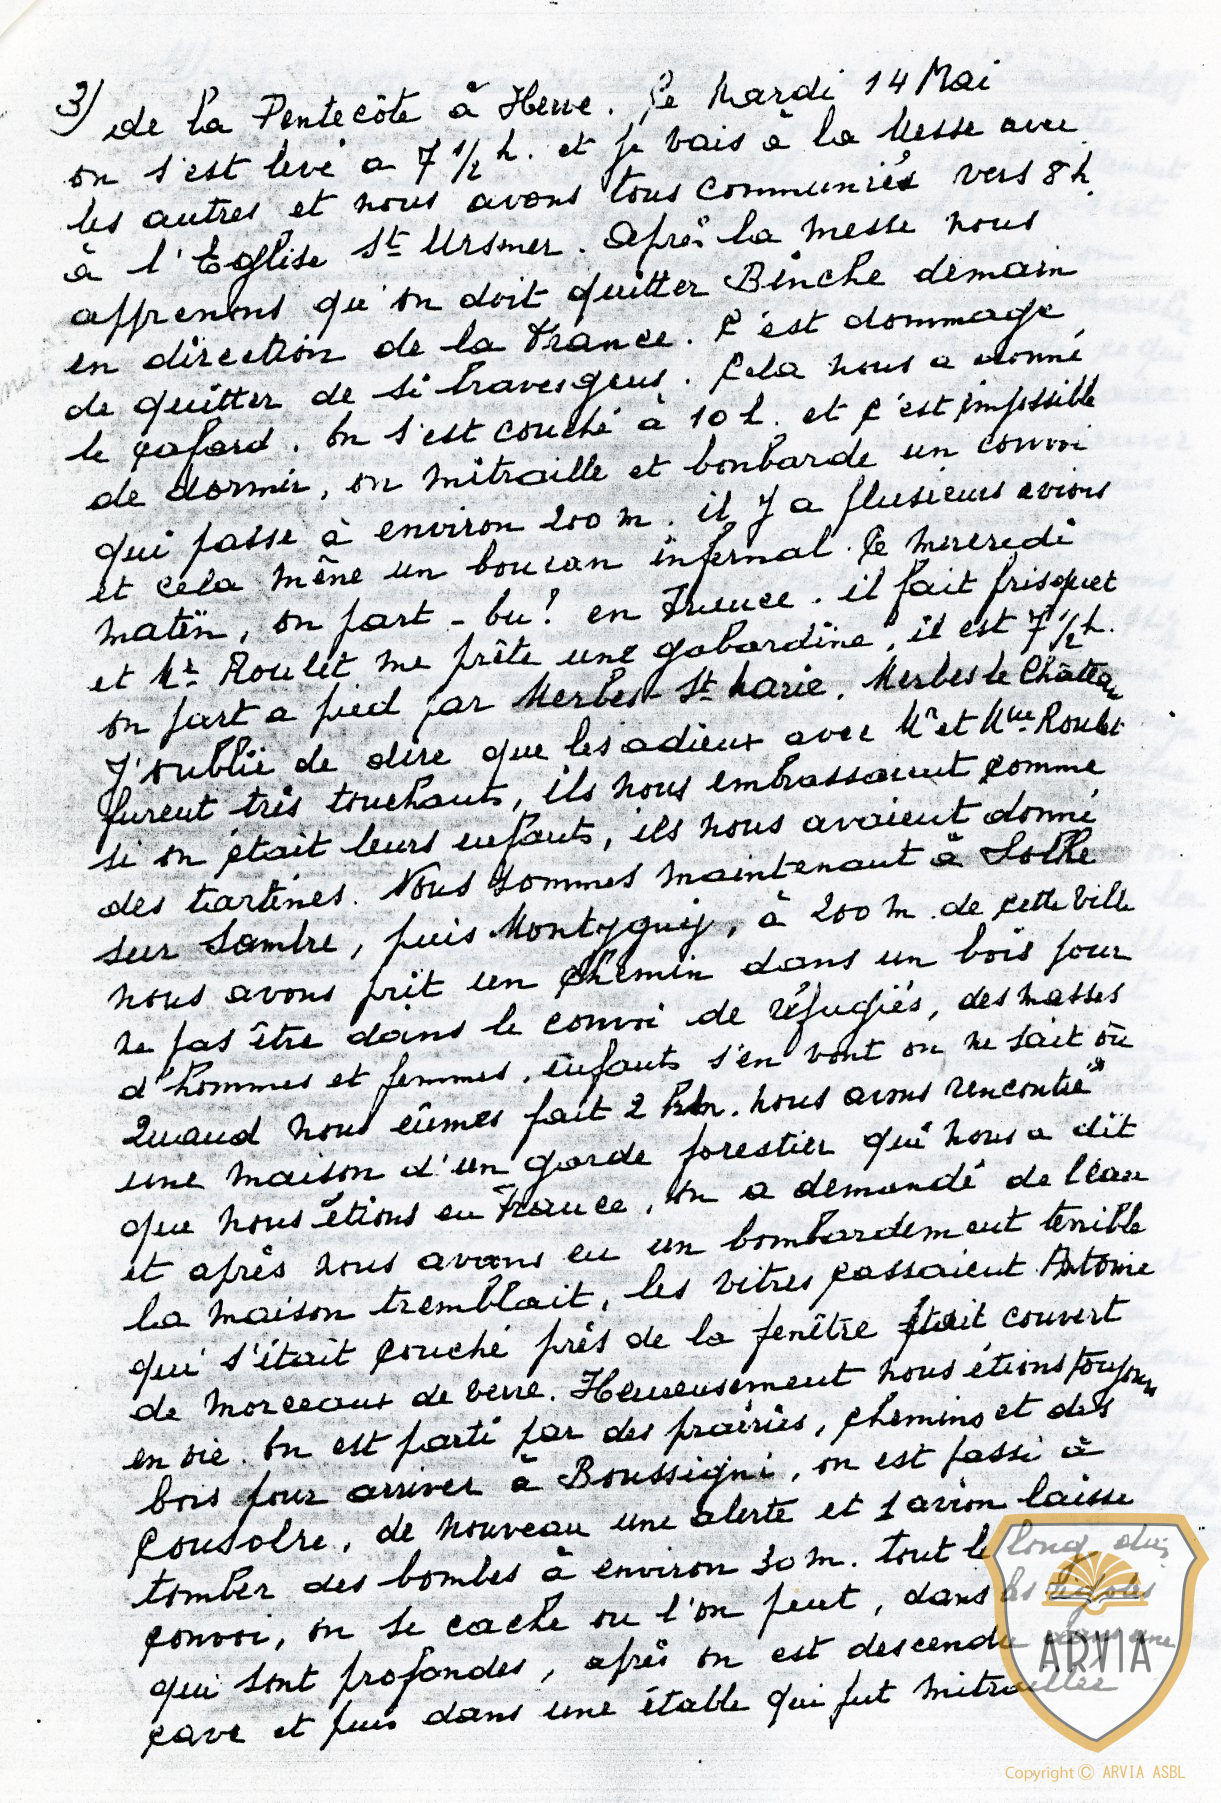 3) de la Pentecôte à Herve. Le Mardi 14 Mai
on s'est levé a 7 1/2 h. et je vais à la Messe avec
les autres et nous avons tous communiés vers 8 h.
à l'Eglise St Ursmer. Après la messe nous
apprenons qu'on doit quitter Binche demain
en direction de la France. C'est dommage
de quitter de si braves gens. Cela nous a donné
le cafard. On s'est couché à 10 h. et c'est impossible
de dormir, on mitraille et bonbarde un convoi
qui passe à environ 200 m. il y a plusieurs avions
et cela mène un boucan infernal. Le mercredi
matin, on part - bu! en France. il fait frisquet
et Mr Roulet me prête une gabardine, il est 7 1/2 h.
on part a pied par Merbes-St Marie. Merbes le Château
J'oublie de dire que les adieux avec Mr et Mme Roulet
furent très touchants, ils nous embrassaient comme
si on était leurs enfants, ils nous avaient donné
des tartines. Nous sommes maintenant à Solre
sur Sambre, puis Montyguij, à 200 m. de cette ville
nous avons prit un chemin dans un bois pour
ne pas être dans le convoi de réfugiés, des masses
d'hommes et femmes, enfants s'en vont on ne sait où
Quand nous eûmes fait 2 km. nous avons rencontré
une maison d'un garde forestier qui nous a dit
que nous étions en France, on a demandé de l'eau
et après nous avons eu un bombardement terrible
la maison tremblait, les vitres cassaient Antoine
qui s'était couché près de la fenêtre était couvert
de morceaux de verre. Heureusement nous étions toujours
en vie. On est parti par des prairies, chemins et des
bois pour arriver à Boussigni, on est passé à
Cousolre, de nouveau une alerte et 1 avion laisse
tomber des bombes à environ 30 m. tout le long du
convoi, on se cache ou l'on peut, dans les
qui sont profondes, après on est descendu dans une
cave et puis dans une étable qui fut mitraillée
ARVIA
Copyright © ARVIA ASBL